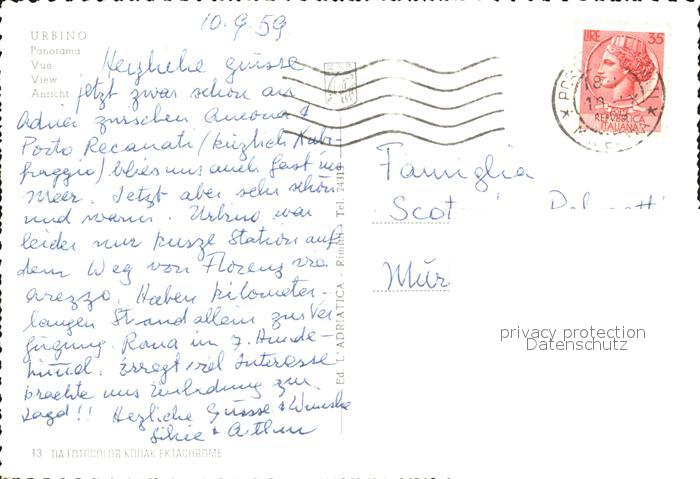 10.9.59
URBINO
Panorama
Vue
View
Ansicht
Herzliche Grüsse
jetzt zwar schon an
Adria zwischen Ancona &
Porto Recanati /
blies uns auch fast ins
Meer. Jetzt aber sehr schön
und warm. Urbino war
leider nur kurze Station auf
dem Weg von Florenz via
Arezzo. Haben kilometer-
langen Strand allein zur Ver-
fügung. im 7. Hunde-
himmel. Erregt viel Interesse
brachte uns Einladung zur
Jagd!! Herzliche Grüsse & Wünsche
&
13 DA FOTOCOLOR KODAK EKTACHROME
Ed. L'ADRIATICA - Rimini - Tel.
LIRE 35
REPUBBLICA
ITALIANA
Famiglia
Scot
Mür
privacy protection
Datenschutz